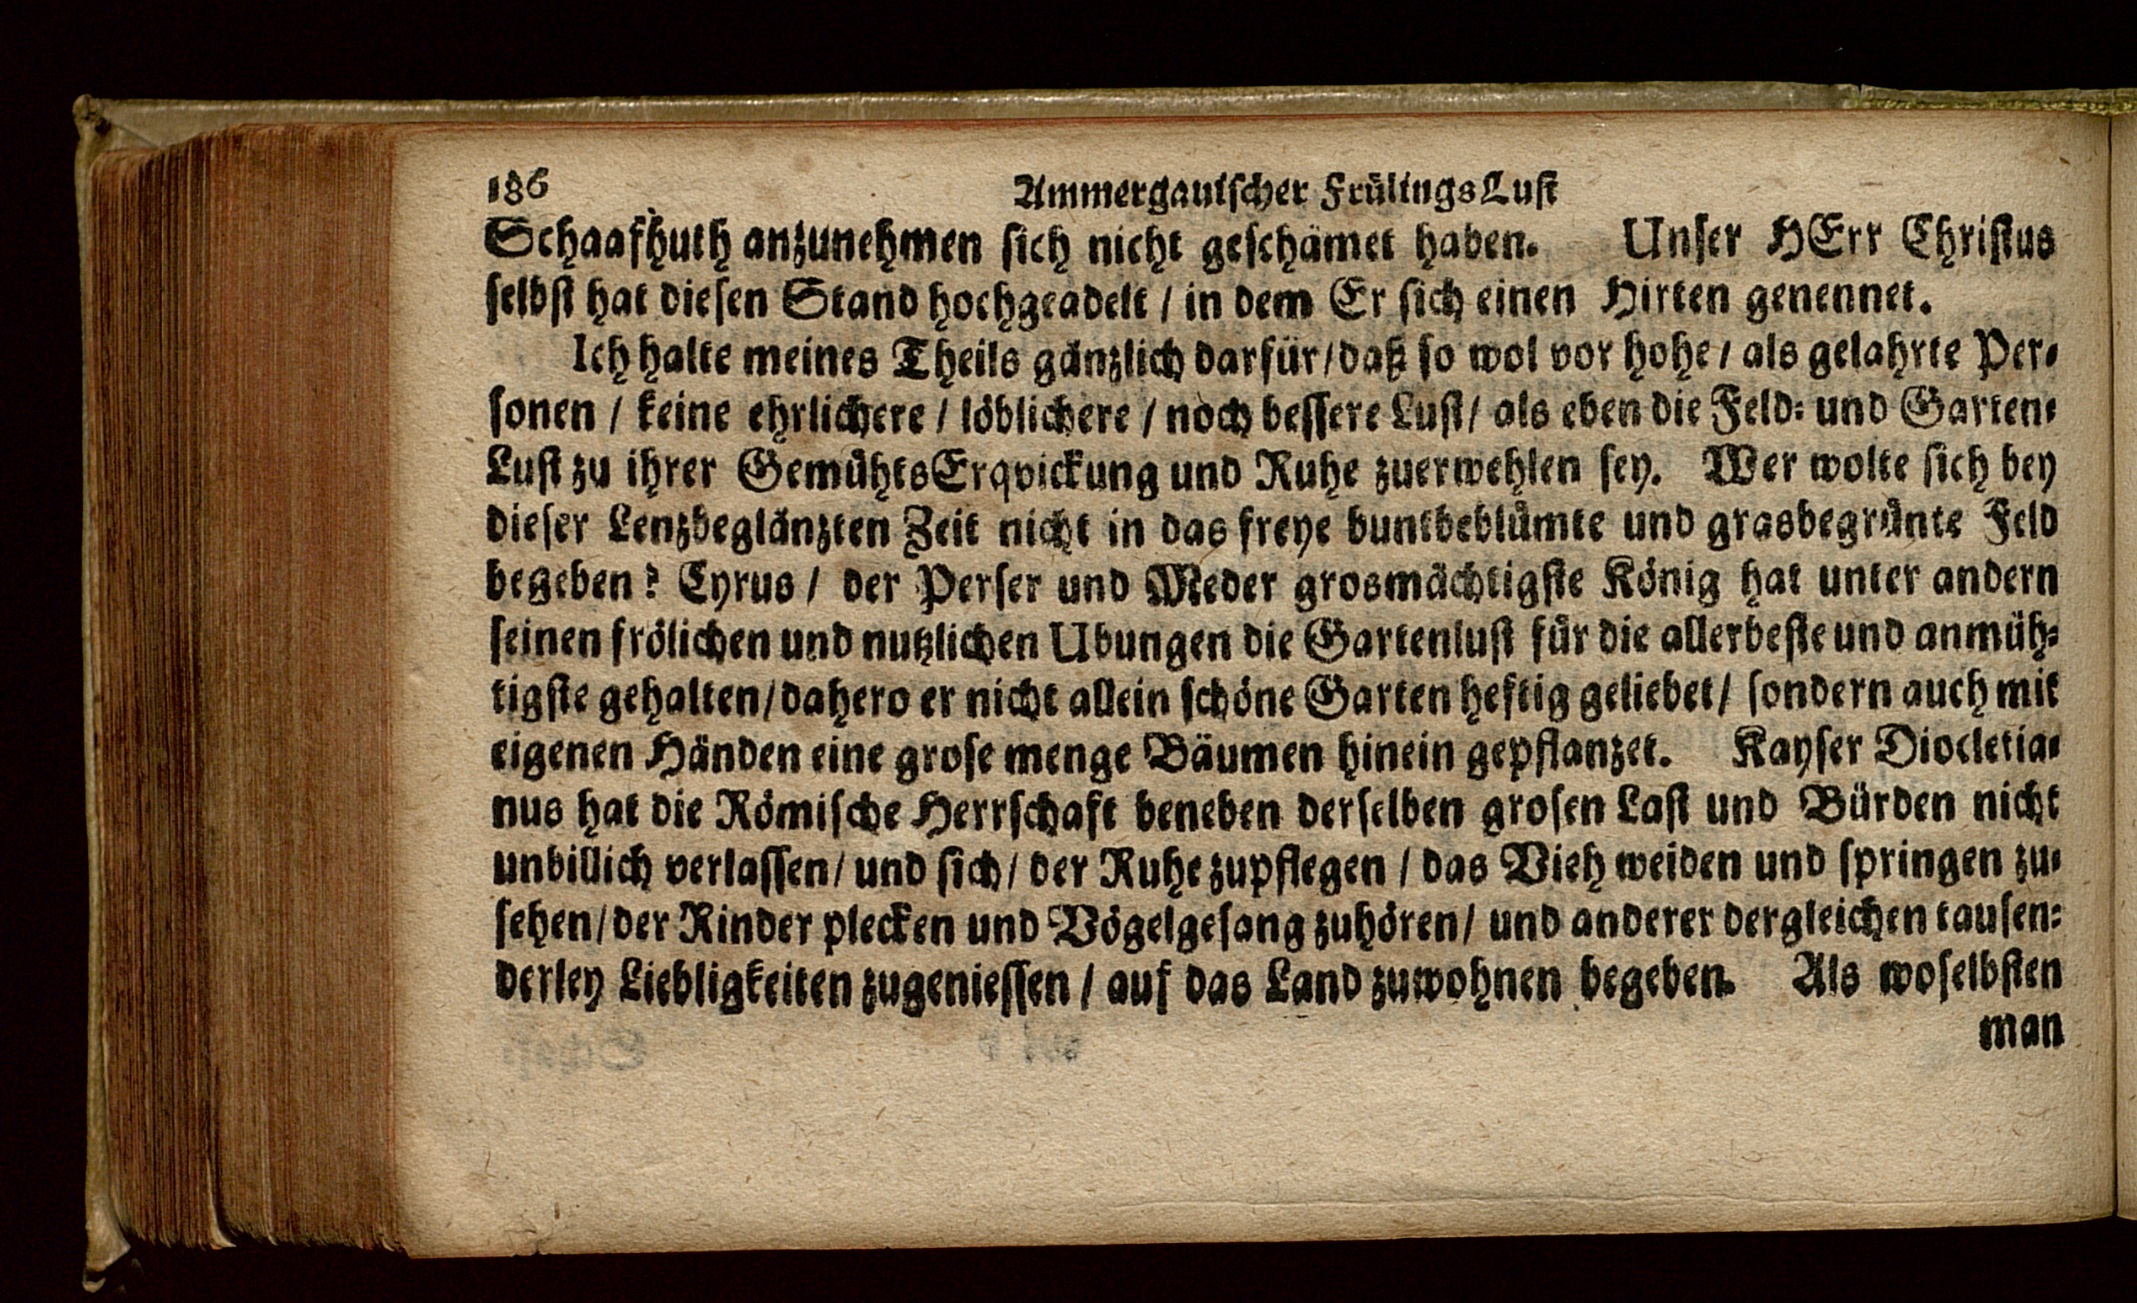 186 Ammergauischer FrülingsLust
Schaafhuth anzunehmen sich nicht geschämet haben. Unser HErr Christus
selbst hat diesen Stand hochgeadelt / in dem Er sich einen Hirten genennet.
Ich halte meines Theils gänzlich darfür / daß so wol vor hohe / als gelahrte Per-
sonen / keine ehrlichere / löblichere / noch bessere Lust / als eben die Feld- und Garten-
Lust zu ihrer GemühtsErqvickung und Ruhe zuerwehlen sey. Wer wolte sich bey
dieser Lenzbeglänzten Zeit nicht in das freye buntbeblümte und grasbegrünte Feld
begeben? Cyrus / der Perser und Meder grosmächtigste König hat unter andern
seinen frölichen und nutzlichen Ubungen die Gartenlust für die allerbeste und anmüh-
tigste gehalten / dahero er nicht allein schöne Garten heftig geliebet / sondern auch mit
eigenen Händen eine grose menge Bäumen hinein gepflanzet. Kayser Diocletia-
nus hat die Römische Herrschaft beneben derselben grosen Last und Bürden nicht
unbillich verlassen / und sich / der Ruhe zupflegen / das Vieh weiden und springen zu-
sehen / der Rinder plecken und Vögelgesang zuhören / und anderer dergleichen tausen-
derley Liebligkeiten zugeniessen / auf das Land zuwohnen begeben. Als woselbsten
man